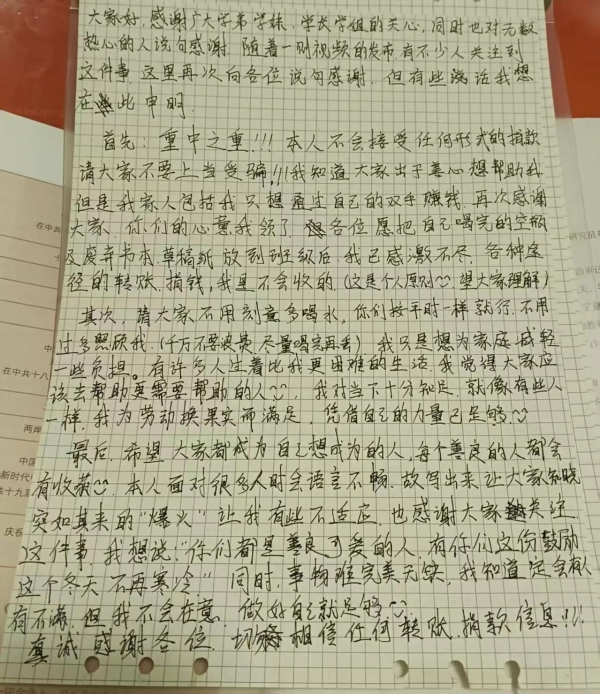 大家好,感谢广大学弟学妹、学长学姐的关心,同时也对无数
热心的人说句感谢.随着一则视频的发布,有不少人关注到
这件事.这里再次向各位说句感谢.但有些话我想
在此申明.
首先:重中之重!!!本人不会接受任何形式的捐款
请大家不要上当受骗!!!我知道大家出于善心想帮助我,
但是我家人包括我只想通过自己的双手赚钱.再次感谢
大家.你们的心意我领了.各位愿把自己喝完的空瓶
及废弃书本草稿纸放到班级后我已感激不尽.各种途
径的转账、捐钱,我是不会收的.(这是个人原则 望大家理解)
其次,请大家不用刻意多喝水,你们按平时一样就行.不用
过多照顾我.(千万不要浪费 尽量喝完再丢)我只是想为家庭减轻
一些负担。有许多人过着比我更困难的生活.我觉得大家应
该去帮助更需要帮助的人.我对当下十分知足.就像有些人
一样,我为劳动换果实而满足.凭借自己的力量已足够
最后,希望大家都成为自己想成为的人,每个善良的人都会
有收获.本人面对很多人时会语言不畅.故写出来,让大家知晓
突如其来的“爆火”让我有些不适应.也感谢大家关注
这件事.我想说:“你们都是善良可爱的人.有你们这份鼓励
这个冬天不再寒冷”同时,事物难完美无缺.我知道定会有人
有不满.但我不会在意.做好自己就足够
真诚感谢各位.切相信任何转账、捐款信息!!!
在中共
在中共十八
两岸
中国
新时代
第十九届
庆祝